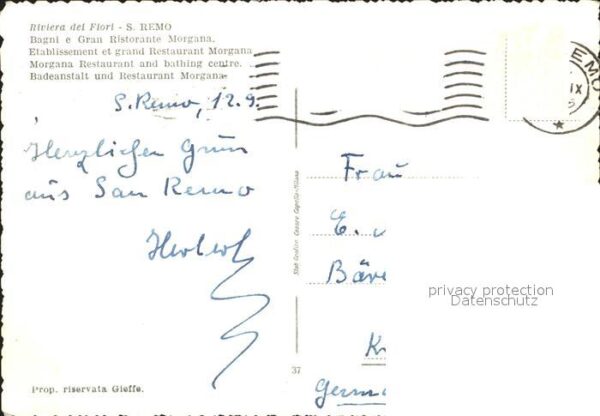 Riviera dei Fiori - S. REMO
Bagni e Gran Ristorante Morgana.
Etablissement et grand Restaurant Morgana
Morgana Restaurant and bathing centre.
Badeanstalt und Restaurant Morgana
S. Remo, 12.9.
Herzlichen Gruss
aus San Remo
Herbert
Stab. Grafico Cesare Capello-Milano
37
Prop. riservata Gieffe.
EMO
IX
Frau
E.
Bäre
K
Germa
privacy protection
Datenschutz